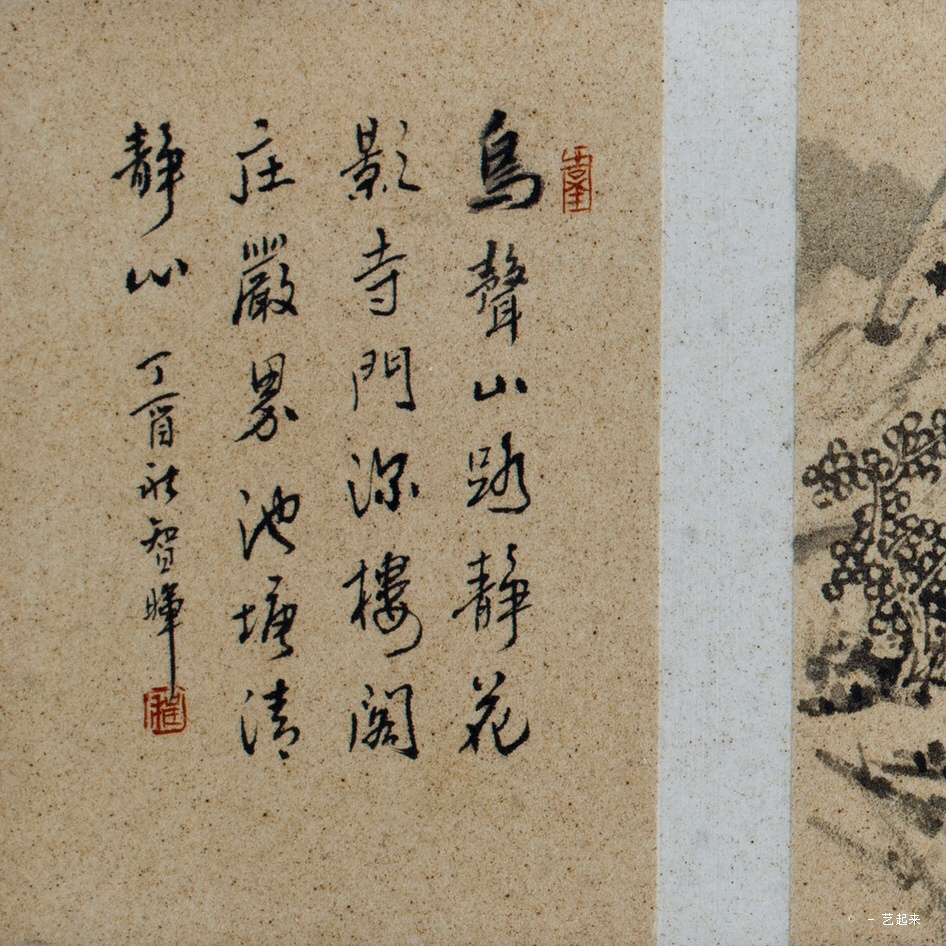 鳥聲山路靜花
影寺門深樓閣
庄嚴界池塘清
靜心 丁酉秋智暉
艺起来